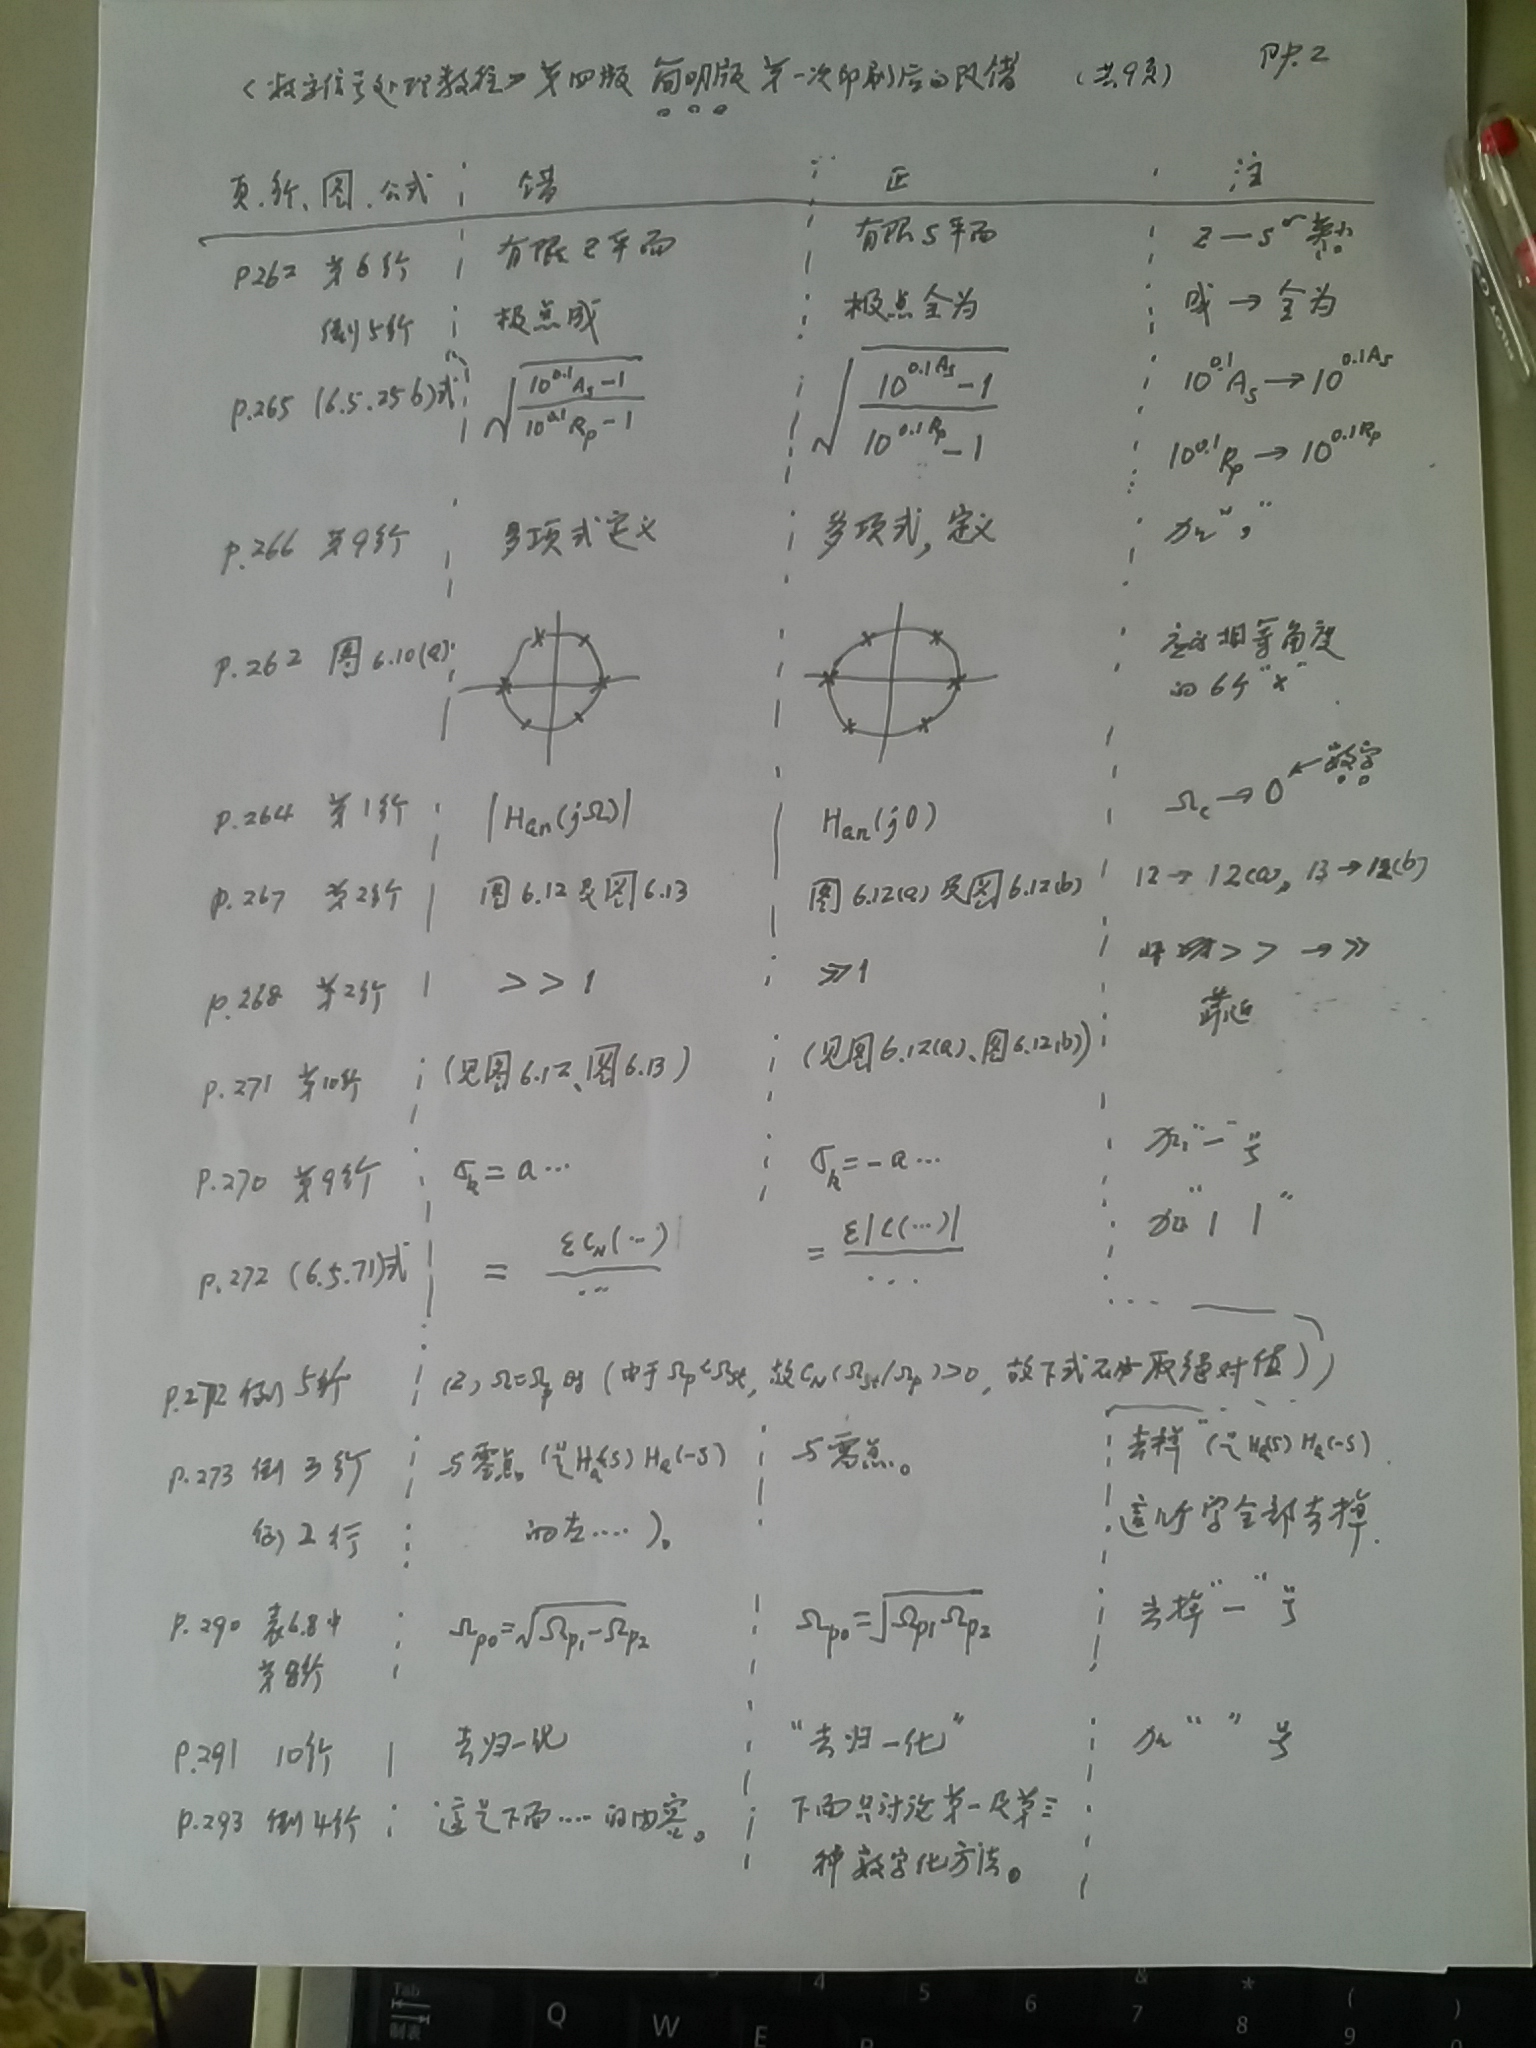 《数字信号处理教程》第四版 简明版 第一次印刷后的改错 (共9页) PP.2
页.行、图.公式 错 正 注
P262 第6行 有限Z平面 有限S平面 Z—S
倒5行 极点成 极点全为 成→全为
P.265 (6.5.25b)式 √((10^0.1 A_s-1)/(10^0.1 R_p-1)) √((10^0.1A_s-1)/(10^0.1R_p-1)) 10^0.1 A_s→10^0.1A_s
10^0.1 R_p→10^0.1R_p
P.266 第9行 多项式定义 多项式,定义 加“,”
P.262 图6.10(a) 应为相等角度
的6个“x”
P.264 第1行 |H_an(jΩ)| H_an(j0) Ω_c→0 ←数字
P.267 第2行 图6.12及图6.13 图6.12(a)及图6.12(b) 12→12(a), 13→12(b)
P.268 第2行 >>1 ≫1 >>→≫
靠近
P.271 第10行 (见图6.12、图6.13) (见图6.12(a)、图6.12(b))
P.270 第9行 σ_k=a… σ_k=-a… 加“—”号
P.272 (6.5.71)式 = εC_N(…)/… = ε|C(…)|/… 加“| |”
P.272 倒5行 (2) Ω=Ω_p时(由于Ω_p<Ω_st,故C_N(Ω_st/Ω_p)>0,故下式不必取绝对值)
P.273 倒3行 与零点。(是H_a(s)H_a(-s) 与零点。 去掉“(是H_a(s)H_a(-s)
倒2行 的左....)。 这几个字全部去掉.
P.290 表6.8中 Ω_p0=√(Ω_p1-Ω_p2) Ω_p0=√(Ω_p1Ω_p2) 去掉“—”号
第8行
P.291 10行 去归一化 “去归一化” 加“ ”号
P.293 倒4行 这是下面....的内容。 下面只讨论第一及第三
种数字化方法。
Tab
制表
Q
W
E
4
5
6
&
7
*
8
(
9
)